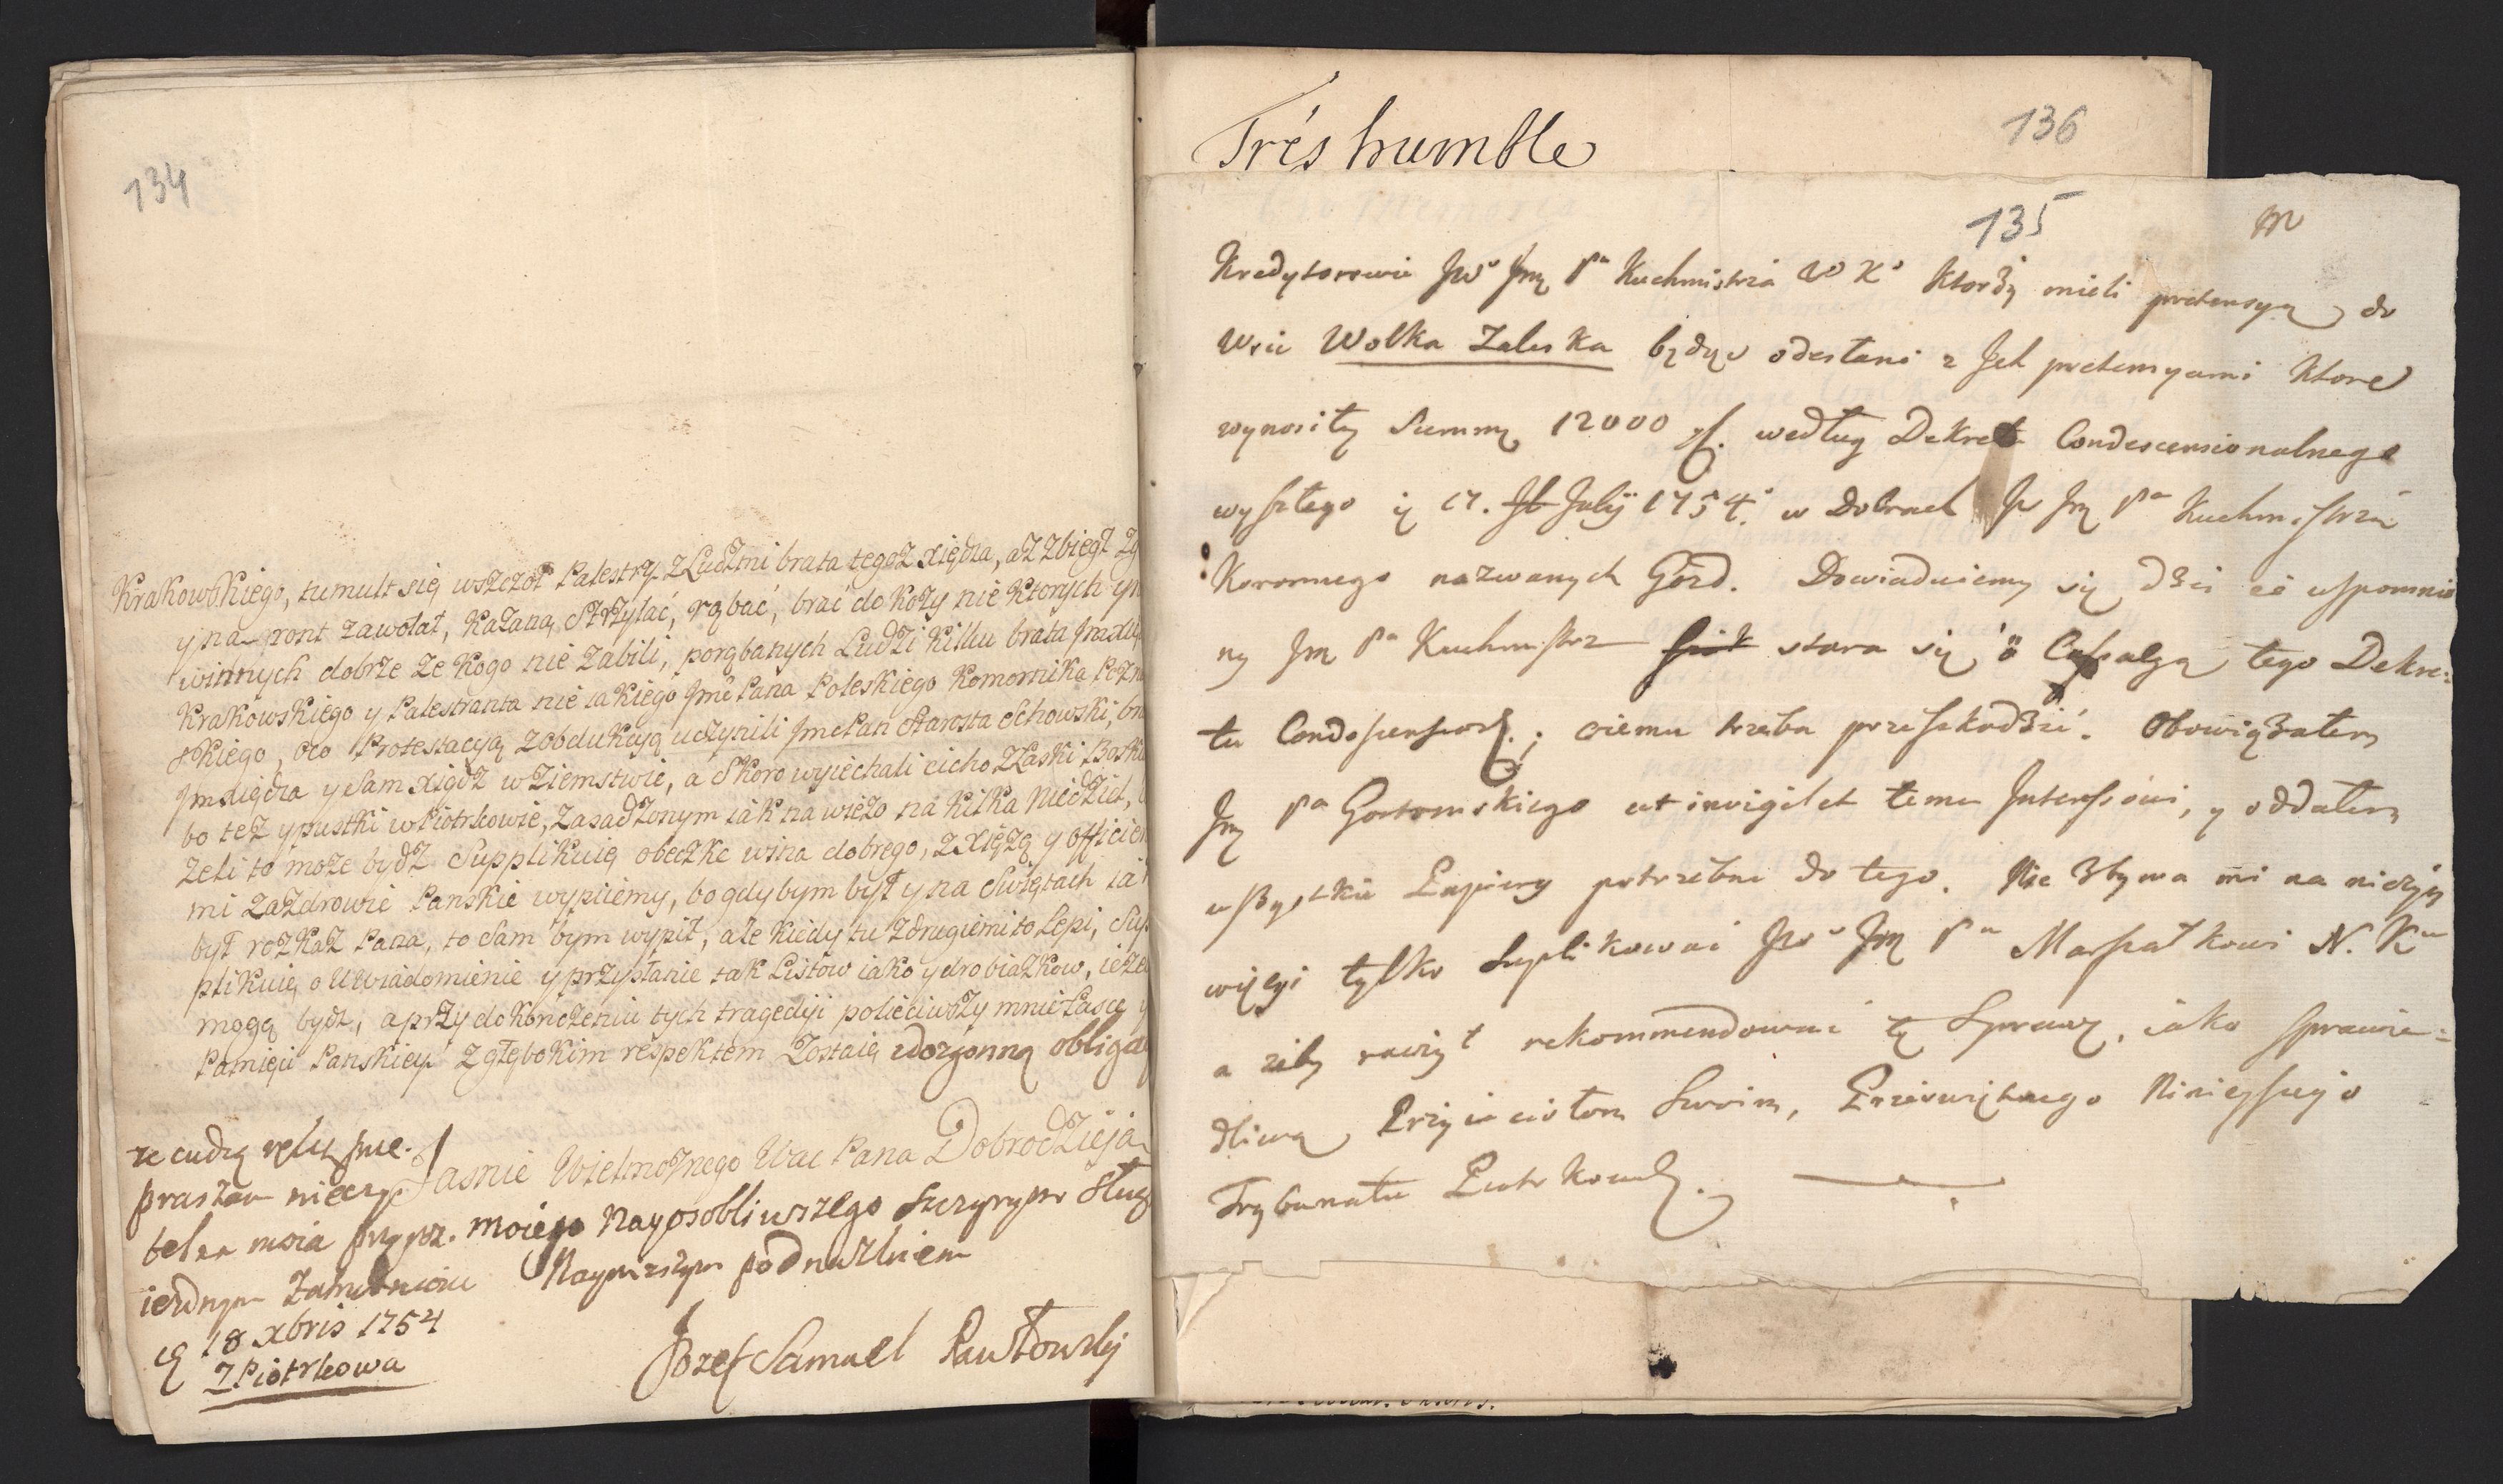 134
Krakowskiego, tumult się wszczoł Palestry z Ludzmi brata tegoż xiędza, aż zbiegł
y na ront zawołał, Kazaną Strzylać, rąbać, brać do Kozy nie Ktorych
winnych dobrze że Kogo nie Zabili, porąbanych Ludzi Kilku brata
Krakowskiego y Palestranta nie iakiego Jmć Pana Poleskiego Komornika
skiego, oco Protestacyją z obdukcyą uczynili Jmć Pan Starosta Ochowski,
Jmxiędza y Sam xiądz w Ziemstwie, a Skoro wyiechali cicho z Łaski
bo też y pustki w Piotrkowie, Zasadzonym iak na wieżo na Kilka Niedziel,
żeli to może bydź Supplikuię obeczkę wina dobrego, z Xiężą y
mi za Zdrowie Panskie wypiiemy, bo gdybym był y na Swiętach
był rozkaz Pana, to Sam bym wypił, ale kiedy tu z drugiemi to Lepi, Sup
plikuię o Uwiadomienie y przysłanie tak Listow iako y drobiazkow,
mogą bydź, a przy dokonczeniu tych tragedyi poleciwszy mnie Łasce y
Pamięci Panskiey z głębokim respektem Zostaię dozgonną
że cudzą ręką
praszam
Jasnie Wielmożnego Wac Pana Dobrodzieja
moia
moiego Nayosobliwszego Szczyrym
iednym
Naynizszym podnużkiem
18 Xbris 1754
z Piotrkowa
Jozef Samuel Pawłowsky
Trés humble
136
135
Kredytorowie Jmę Pa Kuchmistrza W K Ktorzy mieli pretensyą do
Wsie Wolka Zaleska będąc odesłani z Jch pretensyami Ktore
wynosiły Summę 12000 zł. według Dekretu Condescensionalnego
wyszłego 17. Julij 1754. w Dobrach Jw Jm Pa Kuchmistrza
Koronnego nazwanych Gózd. Dowiadujemy się dziś że wspomnio
ny Jm Pa Kuchmistrz stara się o Cassatę tego Dekre:
tu czemu trzeba przeszkodzić. Obowiązałem
Jm Pa Gostomskiego ut invigilet temu Interessowi, y oddałem
wszystkie Papiery potrzebne do tego. Nie zbywa mi na niczym
więcyi tylko suplikować Jw Jm Pa Marszałkowi N. K
a żeby raczył rekommendować tę Sprawę, iako sprawie=
dliwą Przyiaciołom Swoim, Przeświętnego Ninieyszego
Trybunału